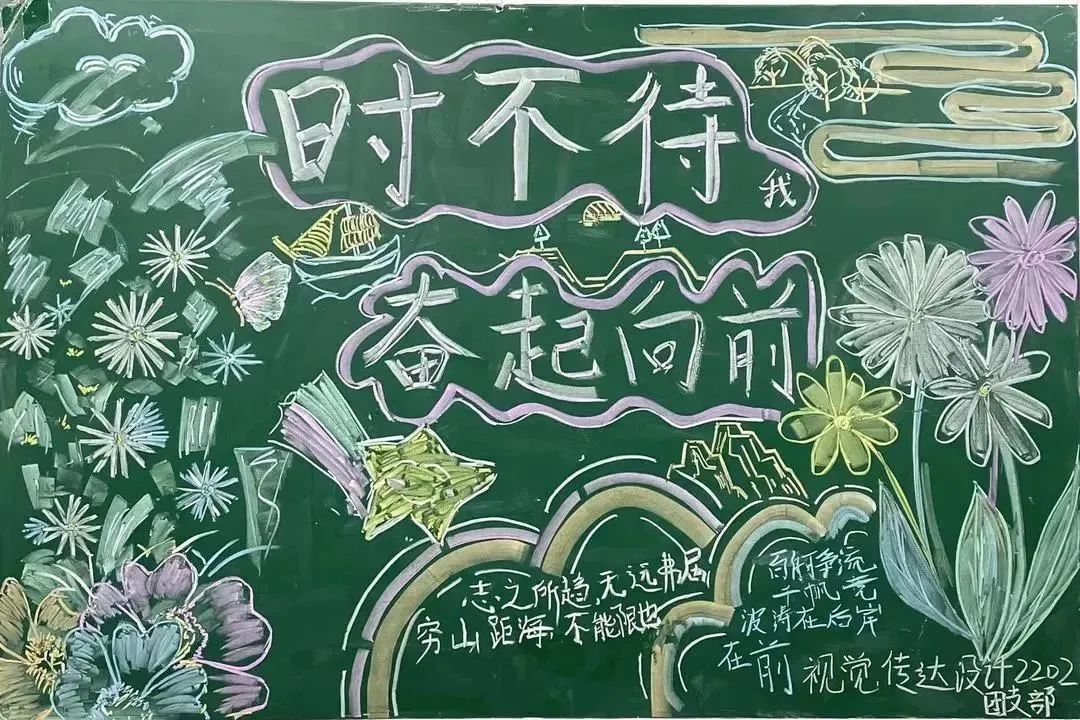 时不待我
奋起向前
志之所趋，无远弗届
穷山距海，不能限也
百舸争流
千帆竞
波涛在后岸
在前
视觉传达设计2202
团支部